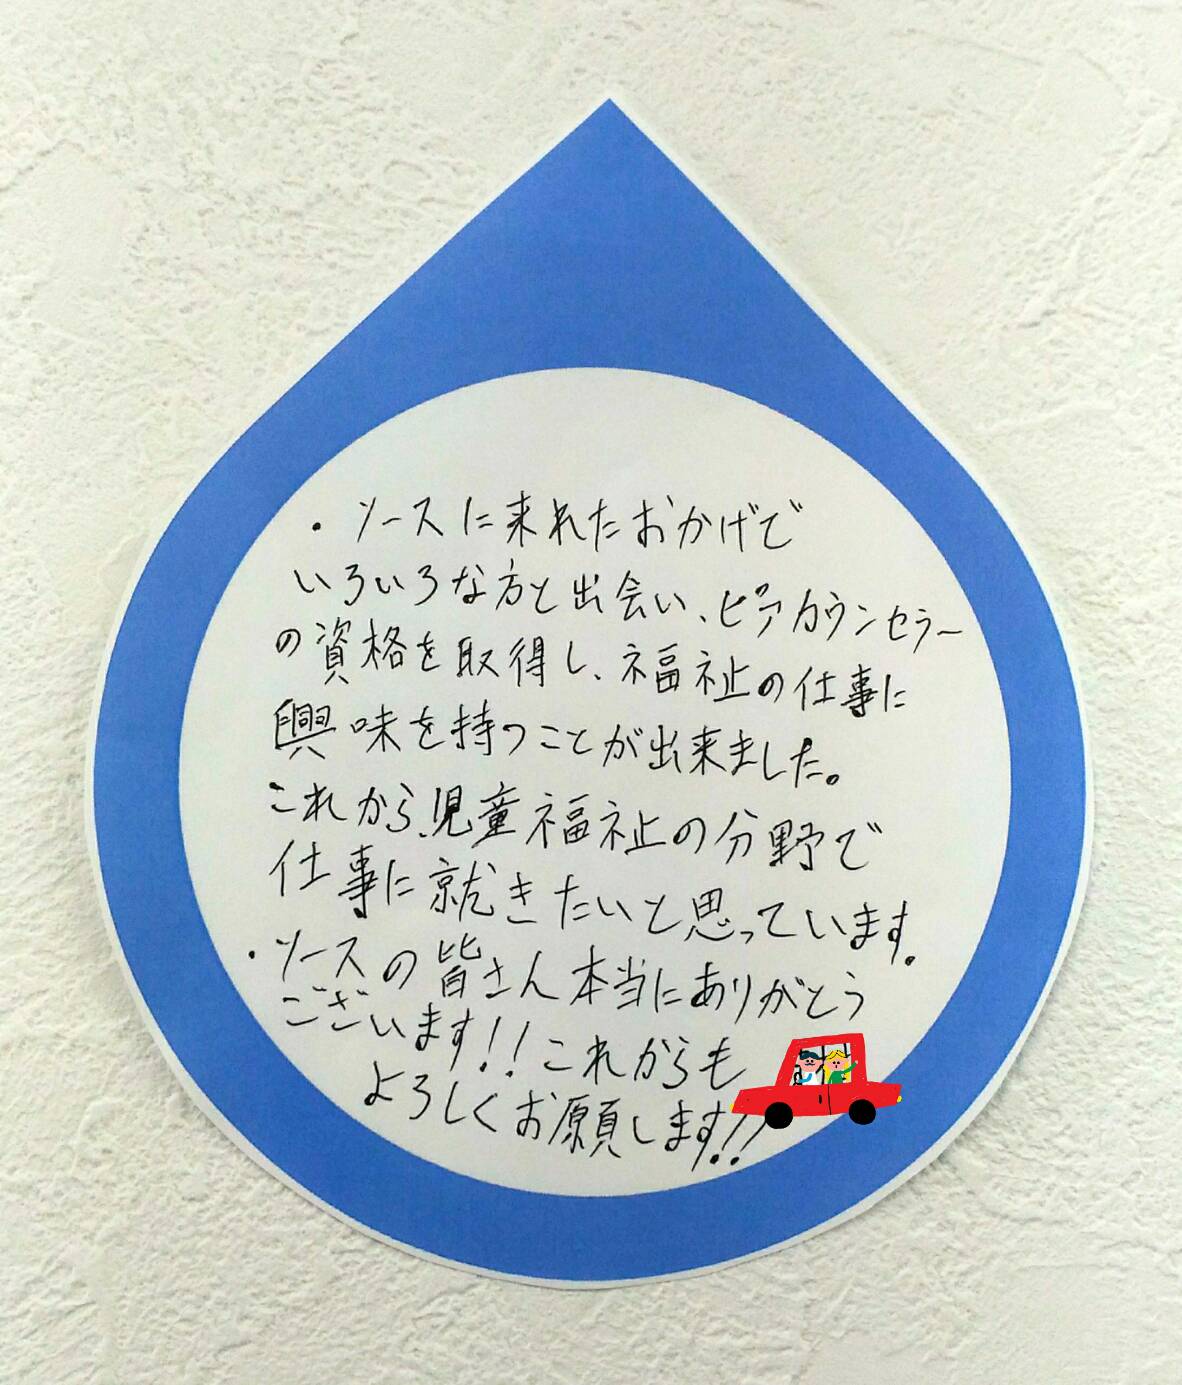 ・ソースに来れたおかげで
いろいろな方と出会い、ピアカウンセラー
の資格を取得し、福祉の仕事に
興味を持つことが出来ました。
これから、児童福祉の分野で
仕事に就きたいと思っています。
・ソースの皆さん本当にありがとう
ございます!!これからも
よろしくお願します!!